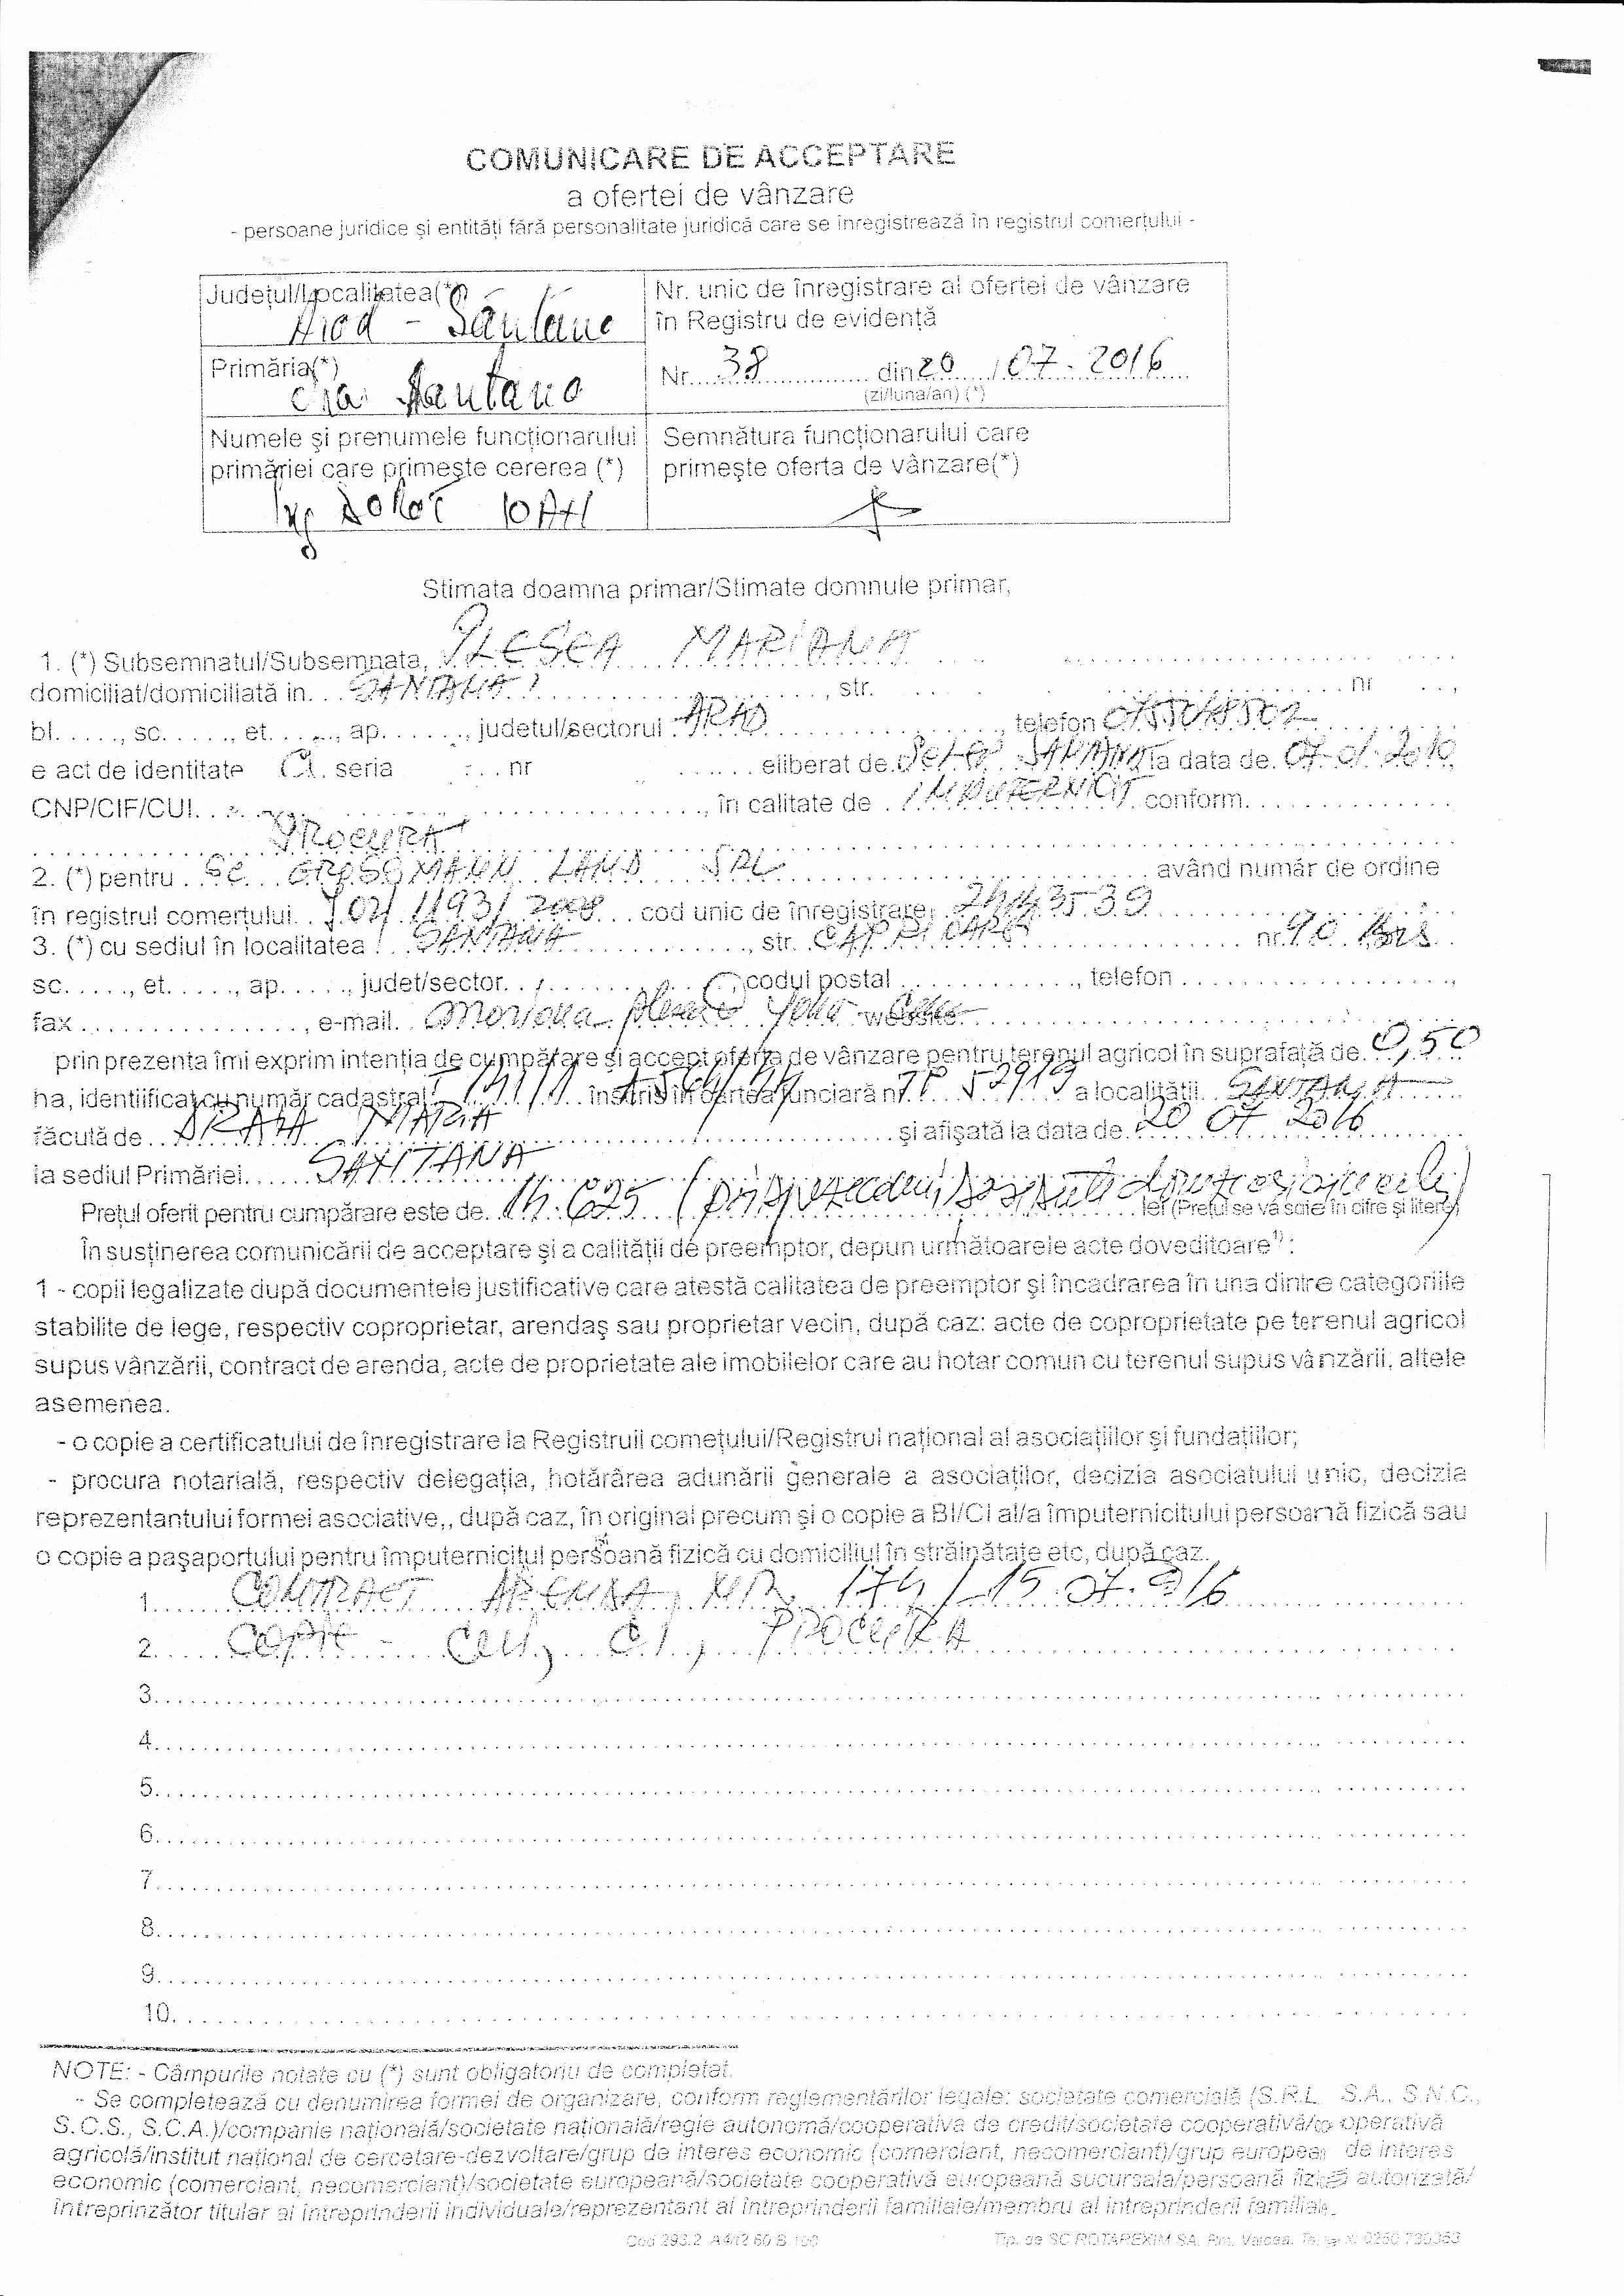 COMUNICARE DE ACCEPTARE
a ofertei de vânzare
- persoane juridice și entități fără personalitate juridică care se înregistrează în registrul comerțului -
Județul/Localitatea(*)
Arad - Sântana
Nr. unic de înregistrare al ofertei de vânzare
în Registru de evidență
Primăria(*)
Nr. 38 din 20 / 07 - 2016
(zi/luna/an) (*)
Numele și prenumele funcționarului
primăriei care primește cererea (*)
Semnătura funcționarului care
primește oferta de vânzare(*)
Stimata doamna primar/Stimate domnule primar,
1. (*) Subsemnatul/Subsemnata, PLESEA MARIANA
domiciliat/domiciliată in SANTANA, str. nr ,
bl. , sc. , et. , ap. , judetul/sectorul ARAD, telefon
e act de identitate CI seria nr eliberat de SANTANA la data de 07-01-2010,
CNP/CIF/CUI , în calitate de IMPUTERNICIT conform
PROCURA
2. (*) pentru SC LAND SRL având număr de ordine
în registrul comerțului J02/1193/2008 cod unic de înregistrare, 24143539
3. (*) cu sediul în localitatea SANTANA, str. nr. 90 Bis
sc. , et. , ap. , judet/sector , codul postal , telefon ,
fax , e-mail website
prin prezenta îmi exprim intenția de cumpărare și accept oferta de vânzare pentru terenul agricol în suprafață de 0,50
ha, identiificat cu număr cadastral înscris în cartea funciară nr. a localității SANTANA
făcută de MARIA și afișată la data de 20 07 2016
la sediul Primăriei SANTANA
Prețul oferit pentru cumpărare este de 14.625 lei (Prețul se va scrie în cifre și litere)
În susținerea comunicării de acceptare și a calității de preemptor, depun următoarele acte doveditoare¹⁾:
1 - copii legalizate după documentele justificative care atestă calitatea de preemptor și încadrarea în una dintre categoriile
stabilite de lege, respectiv coproprietar, arendaș sau proprietar vecin, după caz: acte de coproprietate pe terenul agricol
supus vânzării, contract de arenda, acte de proprietate ale imobilelor care au hotar comun cu terenul supus vânzării, altele
asemenea.
- o copie a certificatului de înregistrare la Registruil comețului/Registrul național al asociațiilor și fundațiilor;
- procura notarială, respectiv delegația, hotărârea adunării generale a asociaților, decizia asociatului unic, decizia
reprezentantului formei asociative,, după caz, în original precum și o copie a BI/CI al/a împuternicitului persoană fizică sau
o copie a pașaportului pentru împuternicitul persoană fizică cu domiciliul în străinătate etc, după caz.
1. CONTRACT ARENDA, NR. 174 / 15.07.2016
2. COPIE - CUI, C.I., PROCURA
3.
4.
5.
6.
7.
8.
9.
10.
NOTE: - Câmpurile notate cu (*) sunt obligatoriu de completat.
- Se completează cu denumirea formei de organizare, conform reglementărilor legale: societate comercială (S.R.L. S.A., S.N.C.,
S.C.S., S.C.A.)/companie națională/societate națională/regie autonomă/cooperativa de credit/societate cooperativă/cooperativă
agricolă/institut național de cercetare-dezvoltare/grup de interes economic (comerciant, necomerciant)/grup european de interes
economic (comerciant, necomerciant)/societate europeană/societate cooperativă europeană sucursala/persoană fizică autorizată/
întreprinzător titular al întreprinderii individuale/reprezentant al întreprinderii familiale/membru al întreprinderii familiale.
Cod 293.2 A4/t2 60 B 100
Tip. de SC ROTAREXIM SA, Rm. Valcea,